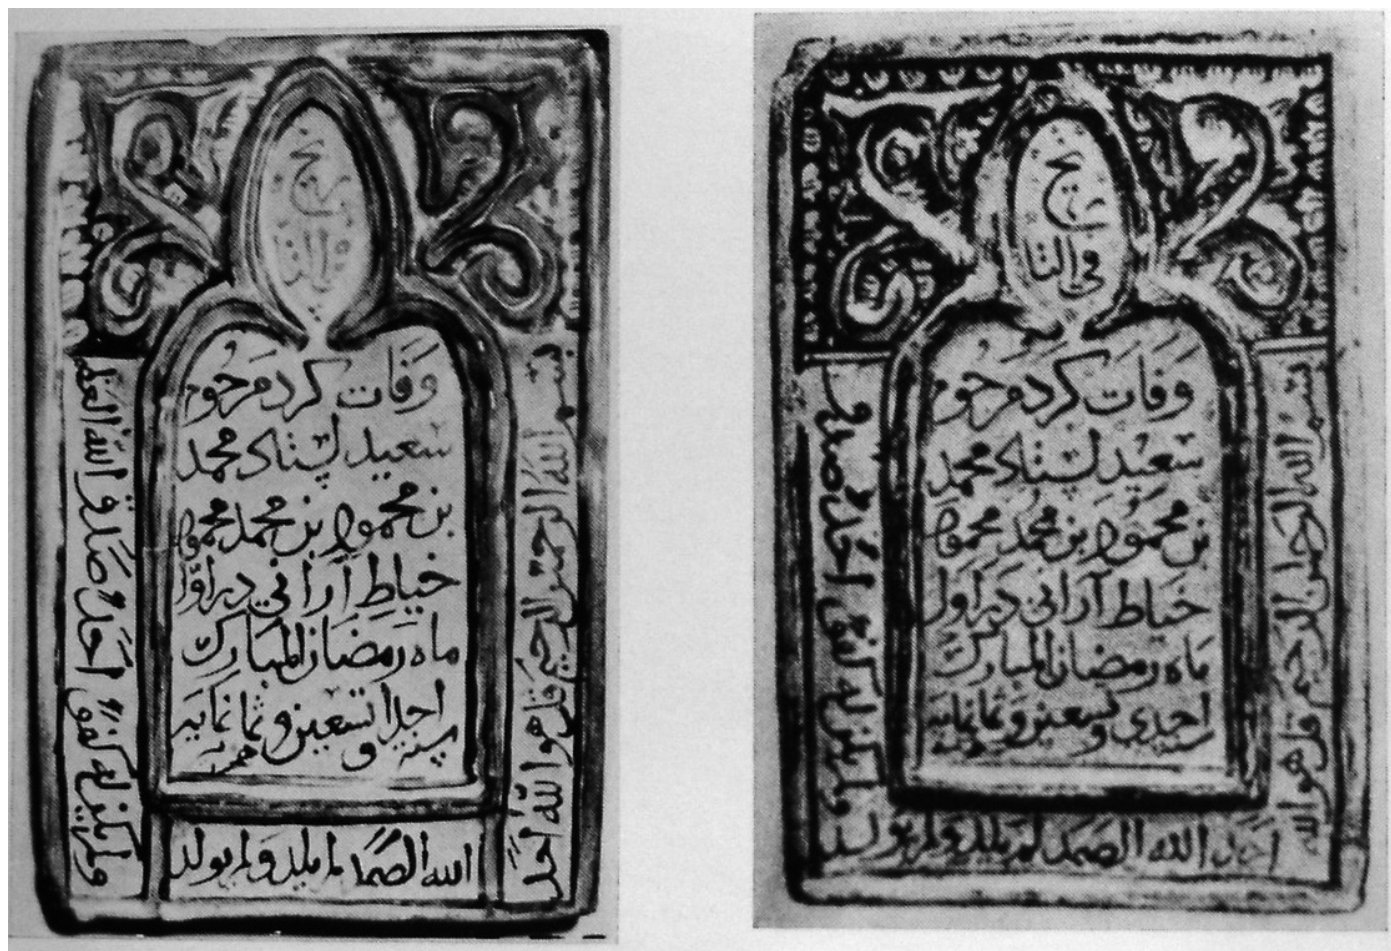 وفات کرد مرحوم
سعید محمد
بن محمود بن محمد محمود
خیاط آرانی در اول
ماه رمضان المبارک
احدا تسعین و ثمانمایه
سنه
بسم الله الرحمن الرحیم قل هو الله احد
الله الصمد لم یلد و لم یولد
ولم یکن له کفوا احد صدق الله العظیم
فی التا
وفات کرد مرحوم
سعید محمد
بن محمود بن محمد محمود
خیاط آرانی در اول
ماه رمضان المبارک
احدی تسعین و ثمانمایه
سنه
بسم الله الرحمن الرحیم قل هو الله
احد الله الصمد لم یلد و لم یولد
ولم یکن له کفوا احد صدق